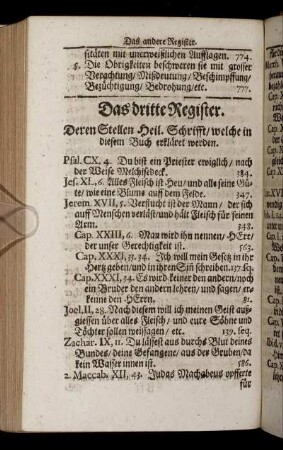 Das andere Register.
sitäten mit unerweißlichen Aufflagen. 774.
5. Die Obrigkeiten beschweren sie mit grosser
Verachtung/Mißdeutung/Beschimpffung/
Bezüchtigung/Bedrohung/etc. 777.
Das dritte Register.
Deren Stellen Heil. Schrifft/welche in
diesem Buch erkläret werden.
Psal. CX, 4. Du bist ein Priester ewiglich/nach
der Weise Melchisedeck. 184.
Jes. XL, 6. Alles Fleisch ist Heu/und alle seine Gü-
te/wie eine Blume auf dem Felde. 347.
Jerem. XVII, 5. Verflucht ist der Mann/der sich
auff Menschen verläst/und hält Fleisch für seinen
Arm. 348.
Cap. XXIII, 6. Man wird ihn nennen/HErr/
der unser Gerechtigkeit ist. 563.
Cap. XXXI, 33. 34. Ich will mein Gesetz in ihr
Hertz geben/und in ihren Sin schreiben. 137. seq.
Cap. XXXI, 34. Es wird keiner den andern/noch
ein Bruder den andern lehren/und sagen/er-
kenne den HErrn. 81.
Joel, II, 28. Nach diesem will ich meinen Geist auß-
giessen über alles Fleisch/und eure Söhne und
Töchter sollen weissagen/etc. 139. seq.
Zachar. IX, 11. Du lässest aus durchs Blut deines
Bundes/deine Gefangene/aus der Gruben/da
kein Wasser innen ist. 586.
2. Maccab. XII, 43. Judas Machabeus opfferte
für